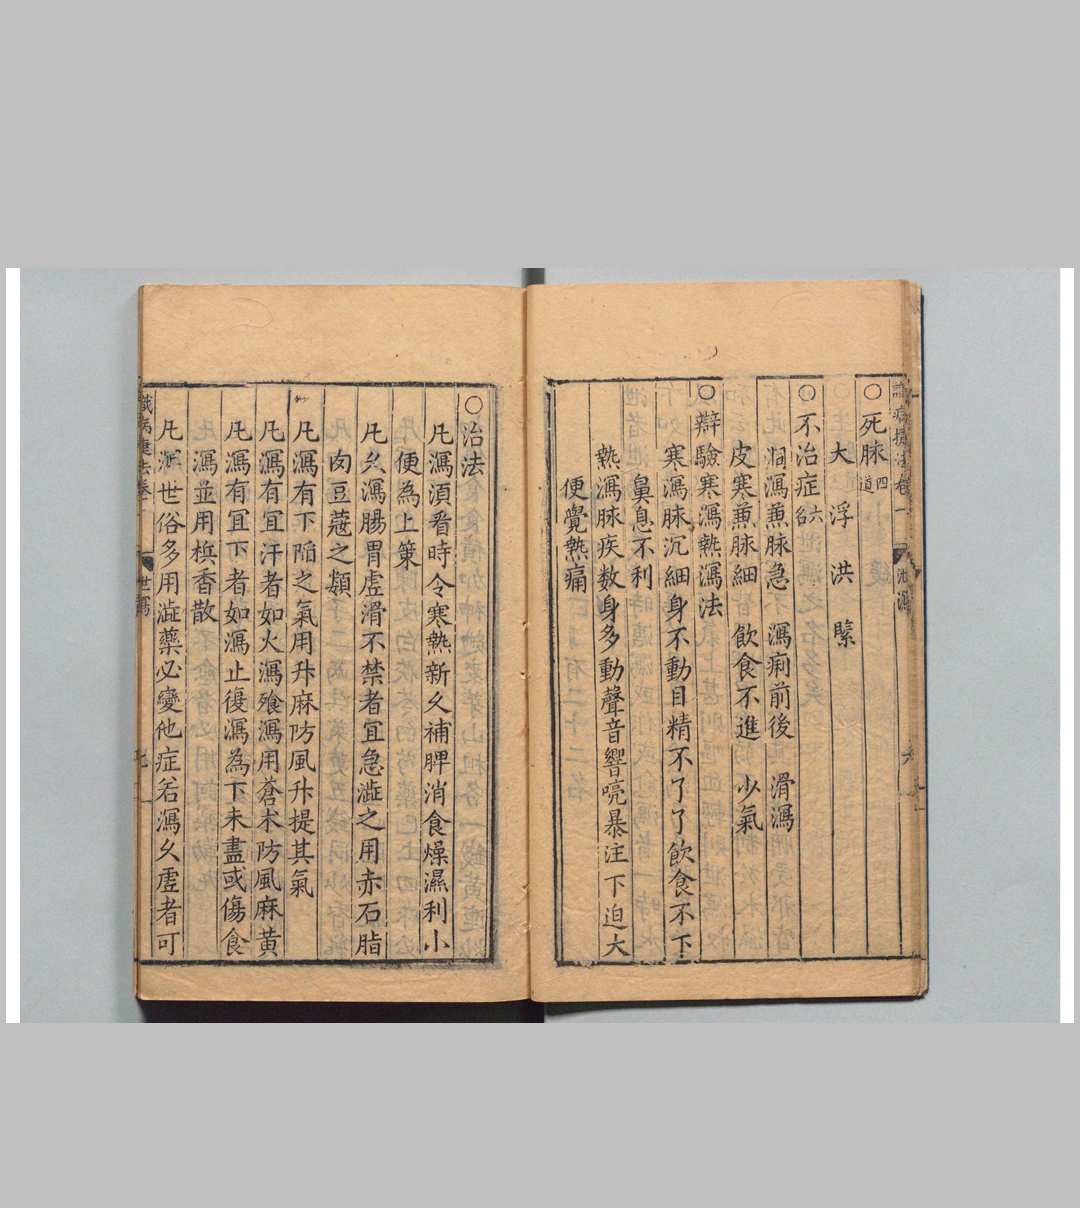 ○死脉四道
大　浮　洪　緊
○不治症六名
洞瀉煎脉急　瀉痢前後　滑瀉
皮寒煎脉細　飲食不進　少氣
○辯驗寒瀉熱瀉法
寒瀉脉沉細身不動目精不了了飲食不下
鼻息不利
熱瀉脉疾数身多動聲音響喨暴注下迫大
便覺熱痛
○治法
凡瀉須看時令寒熱新久補脾消食燥濕利小
便為上策
凡久瀉腸胃虛滑不禁者宜急澁之用赤石脂
肉豆蔻之類
凡瀉有下陷之氣用升麻防風升提其氣
凡瀉有宜汗者如火瀉飱瀉用蒼朮防風麻黄
凡瀉有宜下者如瀉止復瀉為下未盡或傷食
瀉並用槟香散
凡瀉世俗多用澁藥必變他症若瀉久虛者可
泄瀉